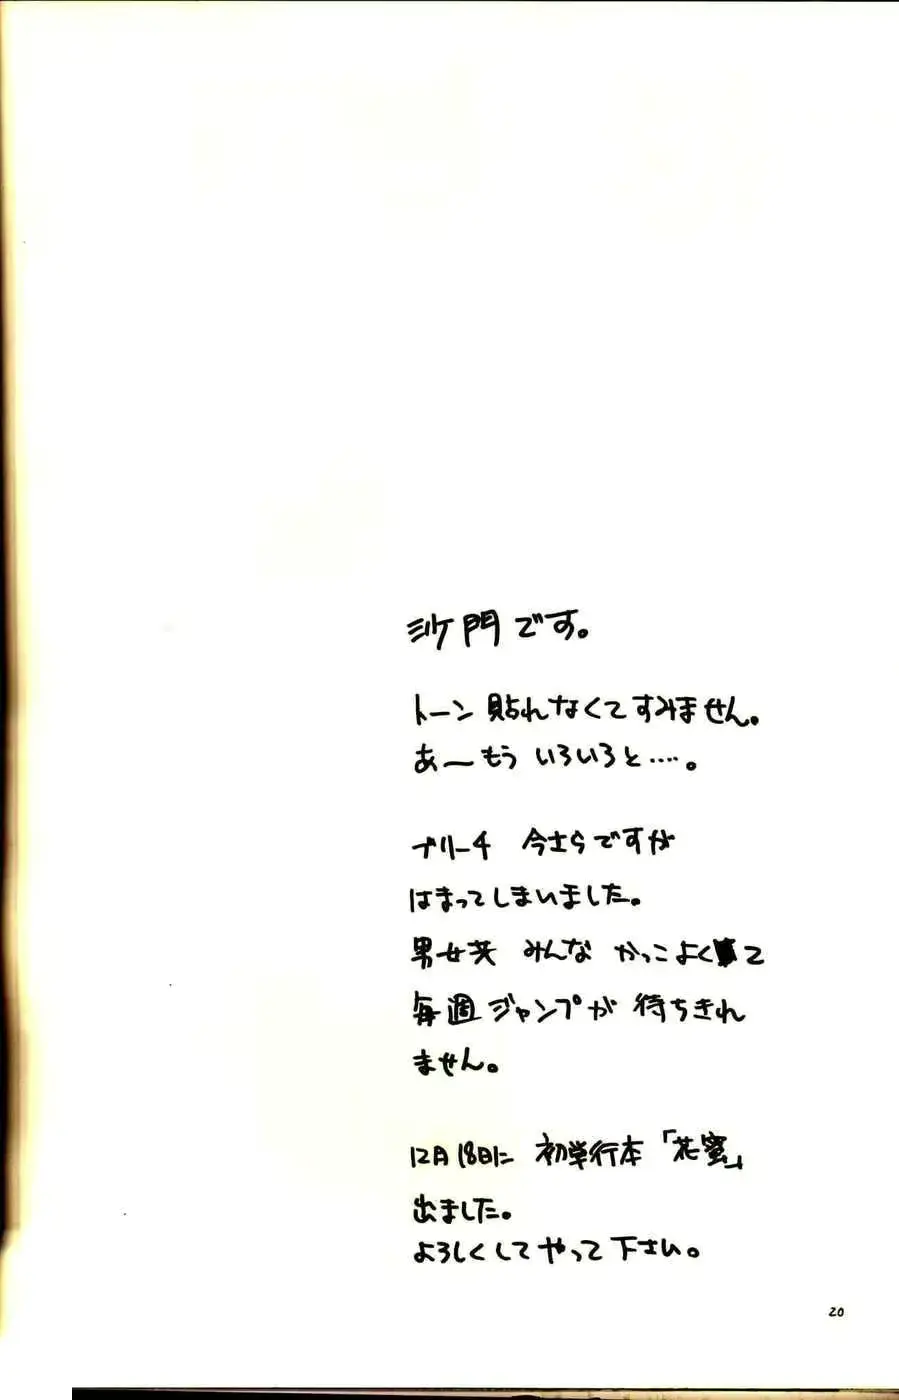 沙門です。
トーン貼れなくてすみません。
あーもう いろいろと‥‥。
ブリーチ 今さらですが
はまってしまいました。
男女共 みんな かっこよくて
毎週ジャンプが 待ちきれ
ません。
12月18日に 初単行本「花蜜」
出ました。
よろしくしてやって下さい。
20